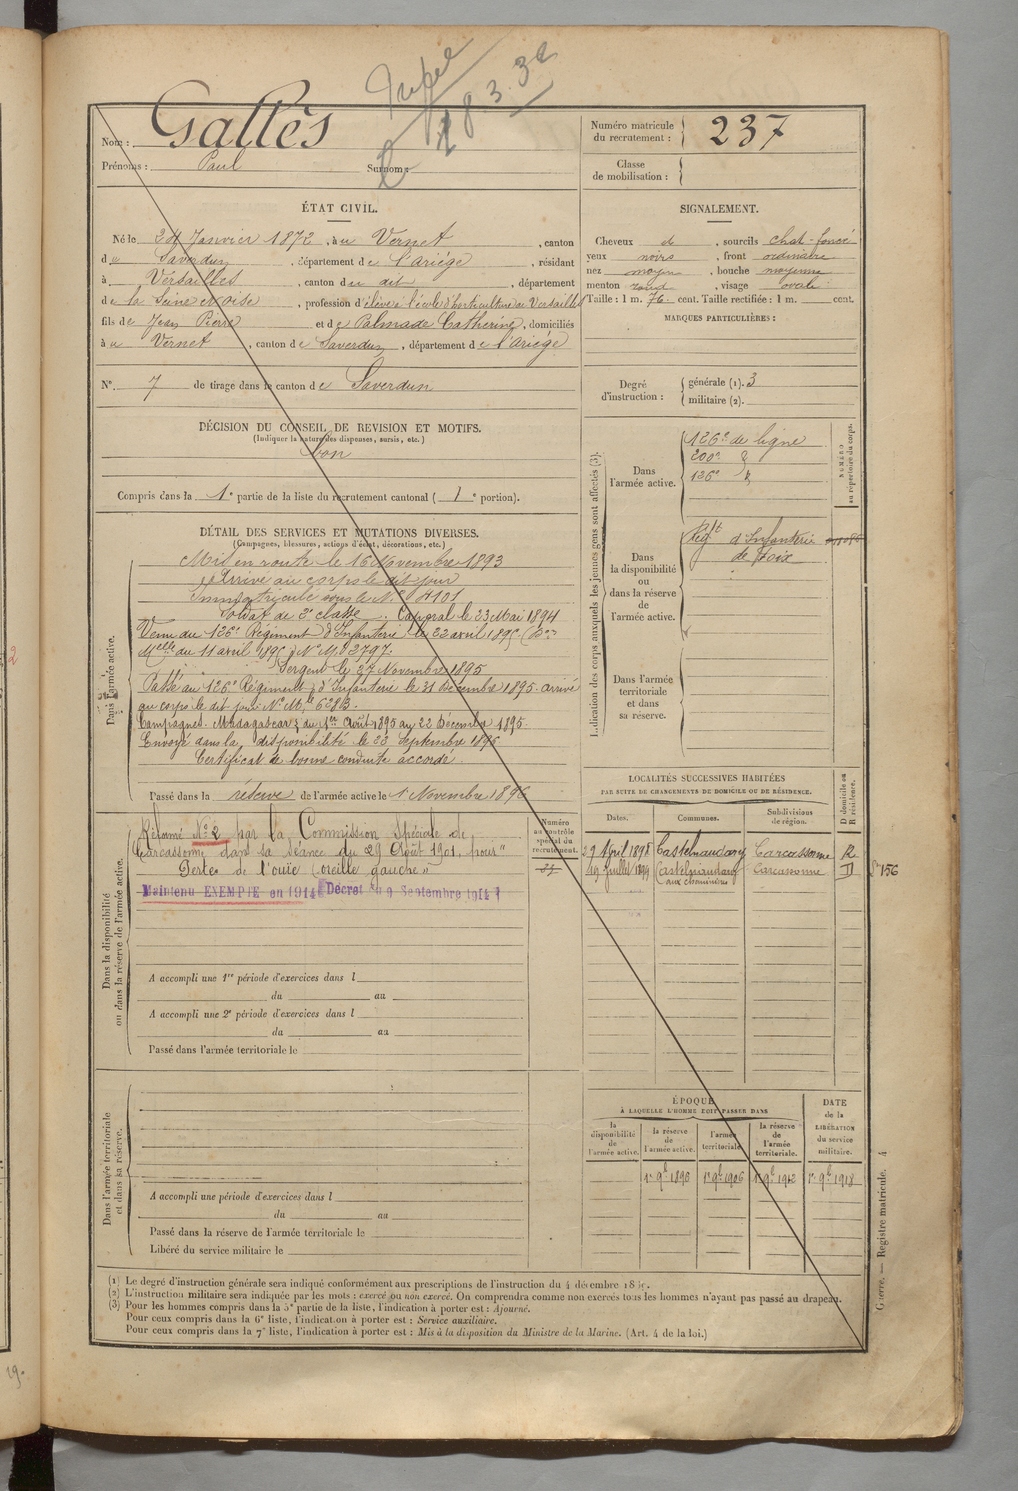 18.3.32
Nom : Gallès
Prénoms : Paul Surnom :
Numéro matricule
du recrutement : 237
Classe
de mobilisation :
ÉTAT CIVIL.
Né le 24 Janvier 1872, à u Vernet, canton
d u Saverdun, département d e l'ariége, résidant
à Versailles, canton d u dit, département
d e la Seine et oise, profession d'élève à l'école d'horticulture de Versailles
fils d e Jean Pierre et d e Palmade Catherine, domiciliés
à u Vernet, canton d e Saverdun, département d e l'Ariége
N° 7 de tirage dans le canton d e Saverdun
SIGNALEMENT.
Cheveux d, sourcils chat-foncé
yeux noirs, front ordinaire
nez moyen, bouche moyenne
menton rond, visage ovale
Taille : 1 m. 76 cent. Taille rectifiée : 1 m. cent.
MARQUES PARTICULIÈRES :
Degré
d'instruction :
générale (1). 3
militaire (2).
DÉCISION DU CONSEIL DE REVISION ET MOTIFS.
(Indiquer la nature des dispenses, sursis, etc.)
bon
Compris dans la 1e partie de la liste du recrutement cantonal ( 1e portion).
DÉTAIL DES SERVICES ET MUTATIONS DIVERSES.
(Campagnes, blessures, actions d'éclat, décorations, etc.)
Dans l'armée active.
Mis en route le 16 Novembre 1893
Arrivé au corps le dit jour
Immatriculé sous le N° 4101
Soldat de 2e classe. Caporal le 23 Mai 1894
Venu du 126e Régiment d'Infanterie le 22 avril 1895 (Don
Melle du 11 avril 1895) N° M. 2797.
Sergent le 27 Novembre 1895
Passé au 126e Régiment d'Infanterie le 21 Décembre 1895. arrivé
au corps le dit jour. N° Mle 6283.
Campagnes. Madagascar du 1er Août 1895 au 22 Décembre 1895.
Envoyé dans la disponibilité le 23 Septembre 1896
Certificat de bonne conduite accordé.
Passé dans la réserve de l'armée active le 1 Novembre 1896
Indication des corps auxquels les jeunes gens sont affectés (3).
NUMÉRO
au répertoire du corps.
Dans
l'armée active.
126e de ligne
200e
126e
Dans
la disponibilité
ou
dans la réserve
de
l'armée active.
Régt d'Infanterie
de Foix
Dans l'armée
territoriale
et dans
sa réserve.
Dans la disponibilité
ou dans la réserve de l'armée active.
Réformé N° 2 par la Commission Spéciale de
Carcassonne dans sa séance du 29 Août 1901, pour "
Perte de l'ouïe (oreille gauche"
Maintenu EXEMPTE en 1914 Décret du 9 Septembre 1914
A accompli une 1re période d'exercices dans l
du au
A accompli une 2e période d'exercices dans l
du au
Passé dans l'armée territoriale le
Numéro
au contrôle
spécial du
recrutement.
LOCALITÉS SUCCESSIVES HABITÉES
PAR SUITE DE CHANGEMENTS DE DOMICILE OU DE RÉSIDENCE.
Dates. Communes. Subdivisions de région. D domicile ou R résidence.
29 Avril 1898 Castelnaudary Carcassonne R
19 Juillet 1899 Castelnaudary Carcassonne D
156
Dans l'armée territoriale
et dans sa réserve.
A accompli une période d'exercices dans l
du au
Passé dans la réserve de l'armée territoriale le
Libéré du service militaire le
ÉPOQUE
À LAQUELLE L'HOMME DOIT PASSER DANS
la disponibilité de l'armée active.
la réserve de l'armée active.
l'armée territoriale.
la réserve de l'armée territoriale.
DATE de la LIBÉRATION du service militaire.
1er 9b 1896 1er 9b 1906 1er 9b 1912 1er 9b 1918
Guerre. — Registre matricule. 4
(1) Le degré d'instruction générale sera indiqué conformément aux prescriptions de l'instruction du 4 décembre 18
(2) L'instruction militaire sera indiquée par les mots : exercé ou non exercé. On comprendra comme non exercés tous les hommes n'ayant pas passé au drapeau.
(3) Pour les hommes compris dans la 5e partie de la liste, l'indication à porter est : Ajourné.
Pour ceux compris dans la 6e liste, l'indication à porter est : Service auxiliaire.
Pour ceux compris dans la 7e liste, l'indication à porter est : Mis à la disposition du Ministre de la Marine. (Art. 4 de la loi.)